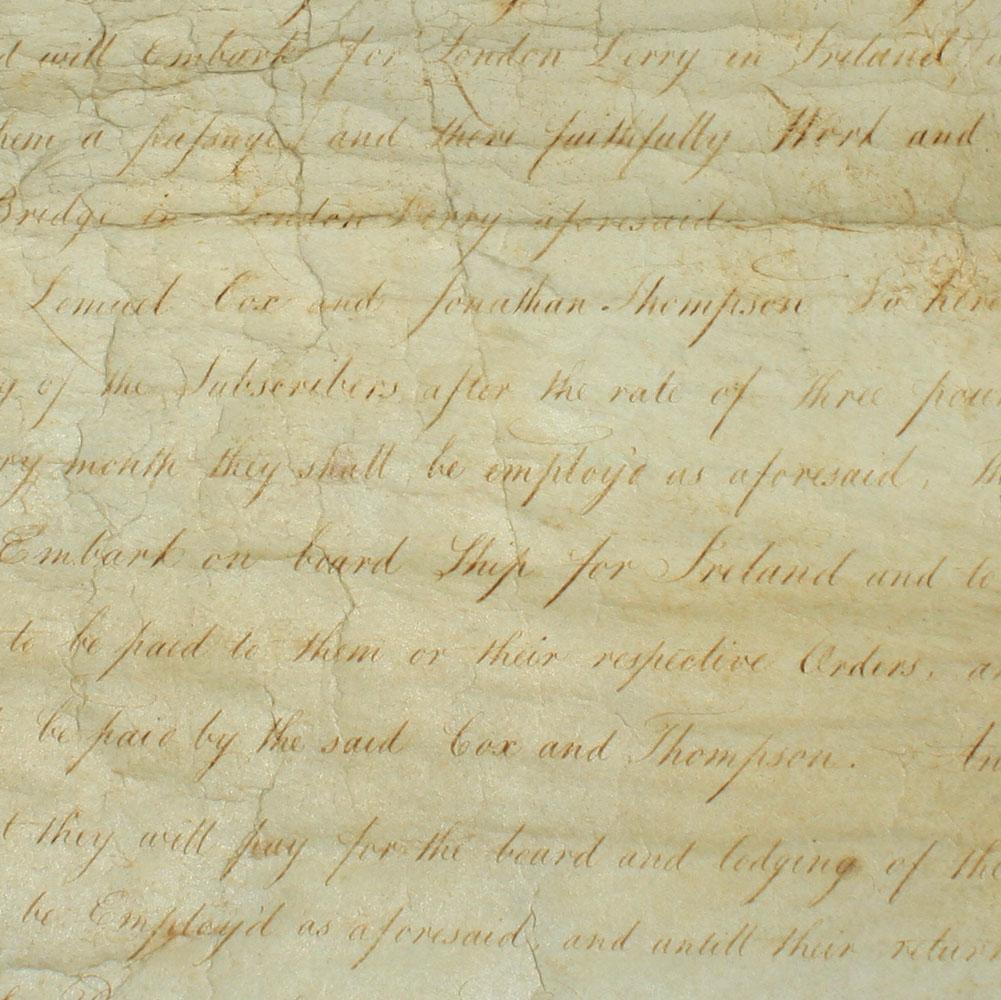 d will Embark for London Derry in Ireland,
hem a passage, and there faithfully Work and
Bridge in London Derry aforesaid
Lemuel Cox and Jonathan Thompson Do here
g of the Subscribers after the rate of three poun
ry month they shall be employ'd as aforesaid, th
Embark on board Ship for Ireland and to
to be paid to them or their respective Orders, an
be paid by the said Cox and Thompson. An
t they will pay for the board and lodging of the
be Employ'd as aforesaid, and untill their return